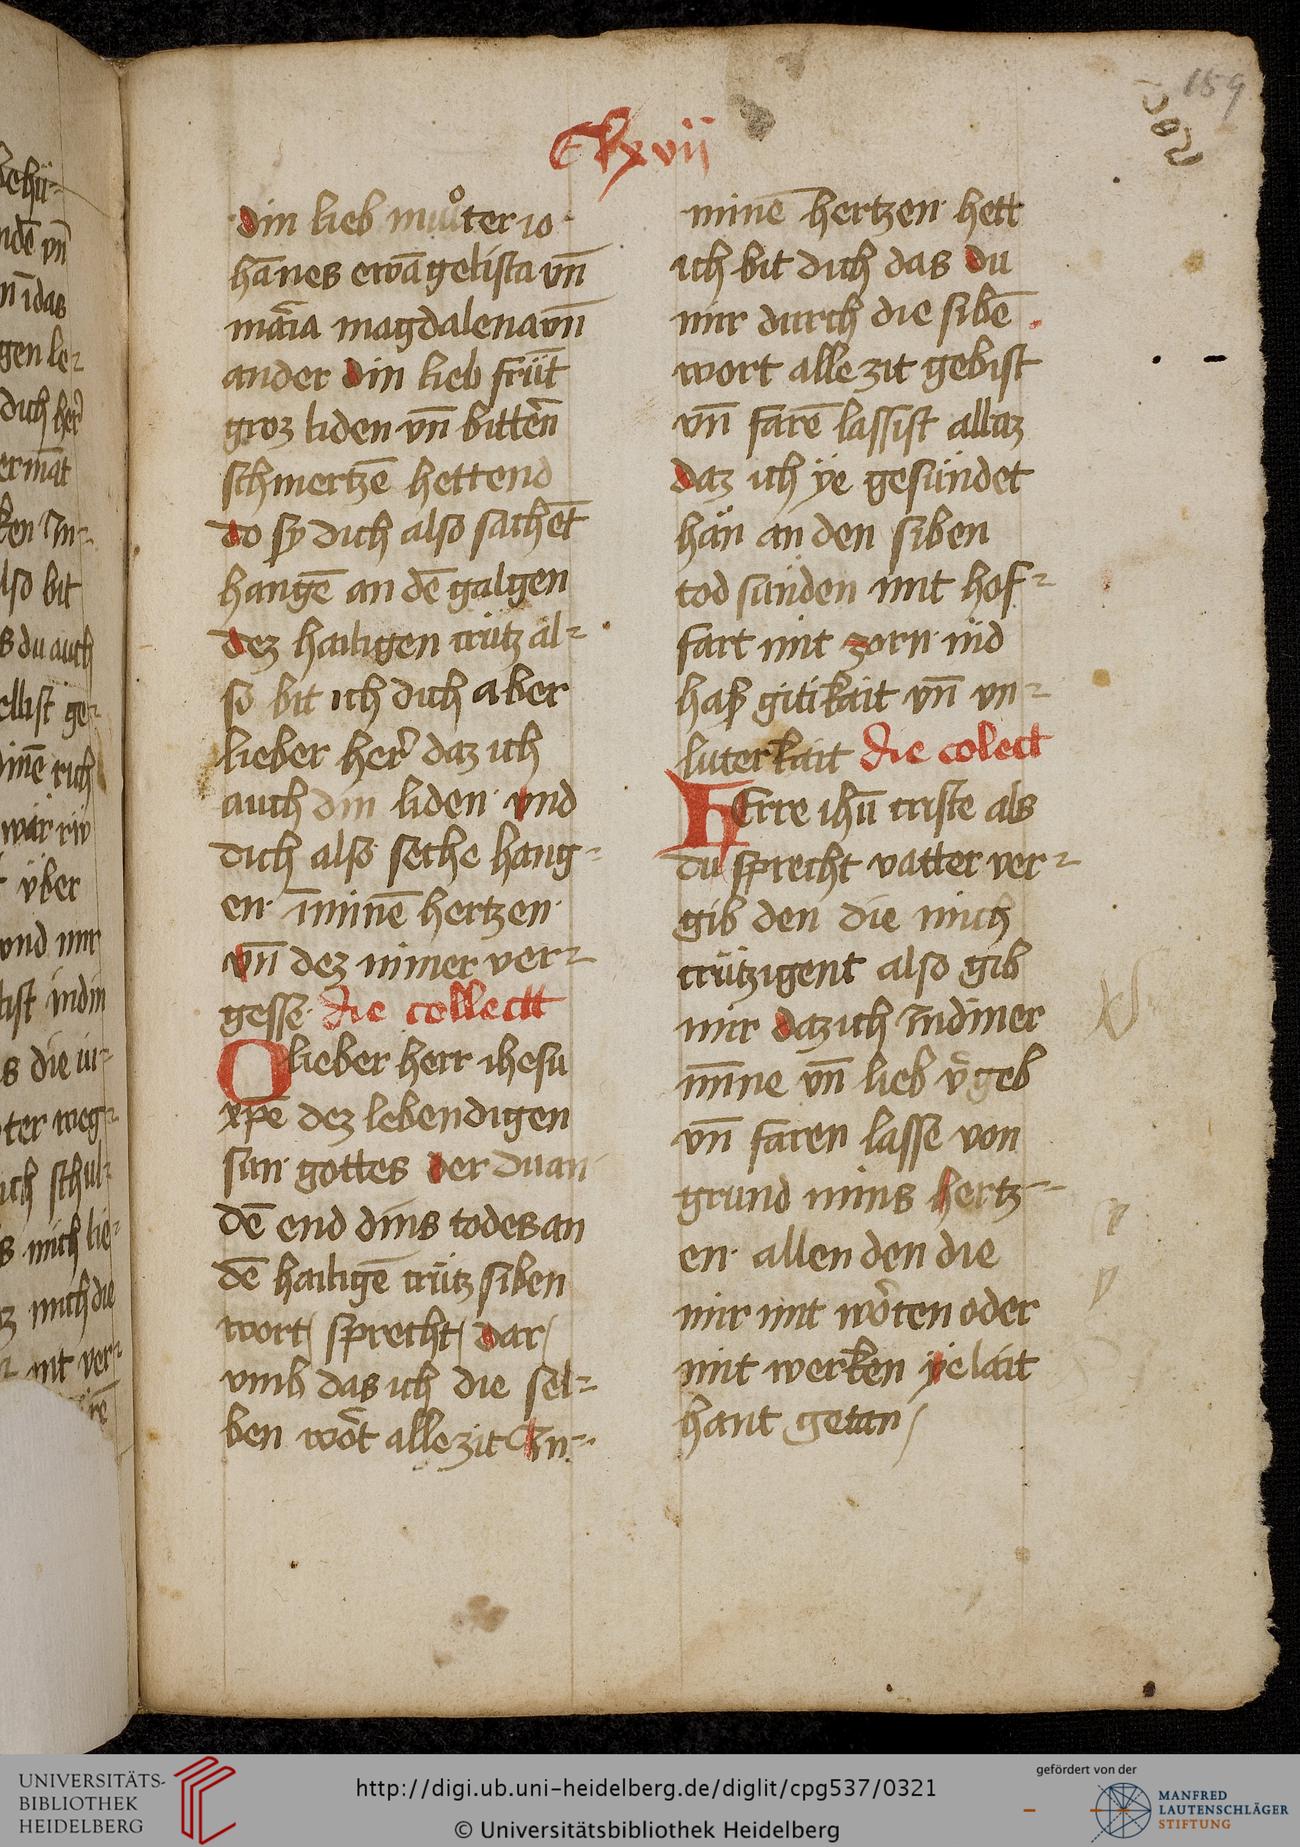 159
Clxvii
din lieb muͦter io
hānes ewāgelista vn̄
māia magdalena vn̄
ander din lieb frūt
groz liden vn̄ bittern̄
schmertzē hettend
do sy dich also sachēt
hangē an dē galgen
dez hailigen crütz al-
so bit ich dich aber
lieber her daz ich
auch din liden vnd
dich also seche hang-
en īminē hertzen
vn̄ dez nimer ver-
gesse die collectt
O lieber herr ihesu
xpē dez lebendigen
sun gottes der du an
dē end dins todes an
dē hailigē crütz siben
wort sprecht / dar /
vmb das ich die sel-
ben wōt alle zit In-
minē hertzen hett
ich bit dich das du
mir durch die sibē
wort alle zit gebist
vn̄ farē lassist alltz
daz ich ÿe gesündet
hän an den siben
tod sünden mit hof-
fart mit zorn nid
haß gitikait vn̄ vn-
luterkait die colect
HErre ihū criste als
du sprecht vatter ver-
gib den die mich
crützigent also gib
mir daz ich Indiner
minne vn̄ lieb v̄geb
vn̄ faren lasse von
grund mins hertz-
en allen den die
mir mit wōten oder
mit werken ÿe lait
hant getan /
UNIVERSITÄTS-
BIBLIOTHEK
HEIDELBERG
http://digi.ub.uni-heidelberg.de/diglit/cpg537/0321
© Universitätsbibliothek Heidelberg
gefördert von der
MANFRED
LAUTENSCHLÄGER
STIFTUNG